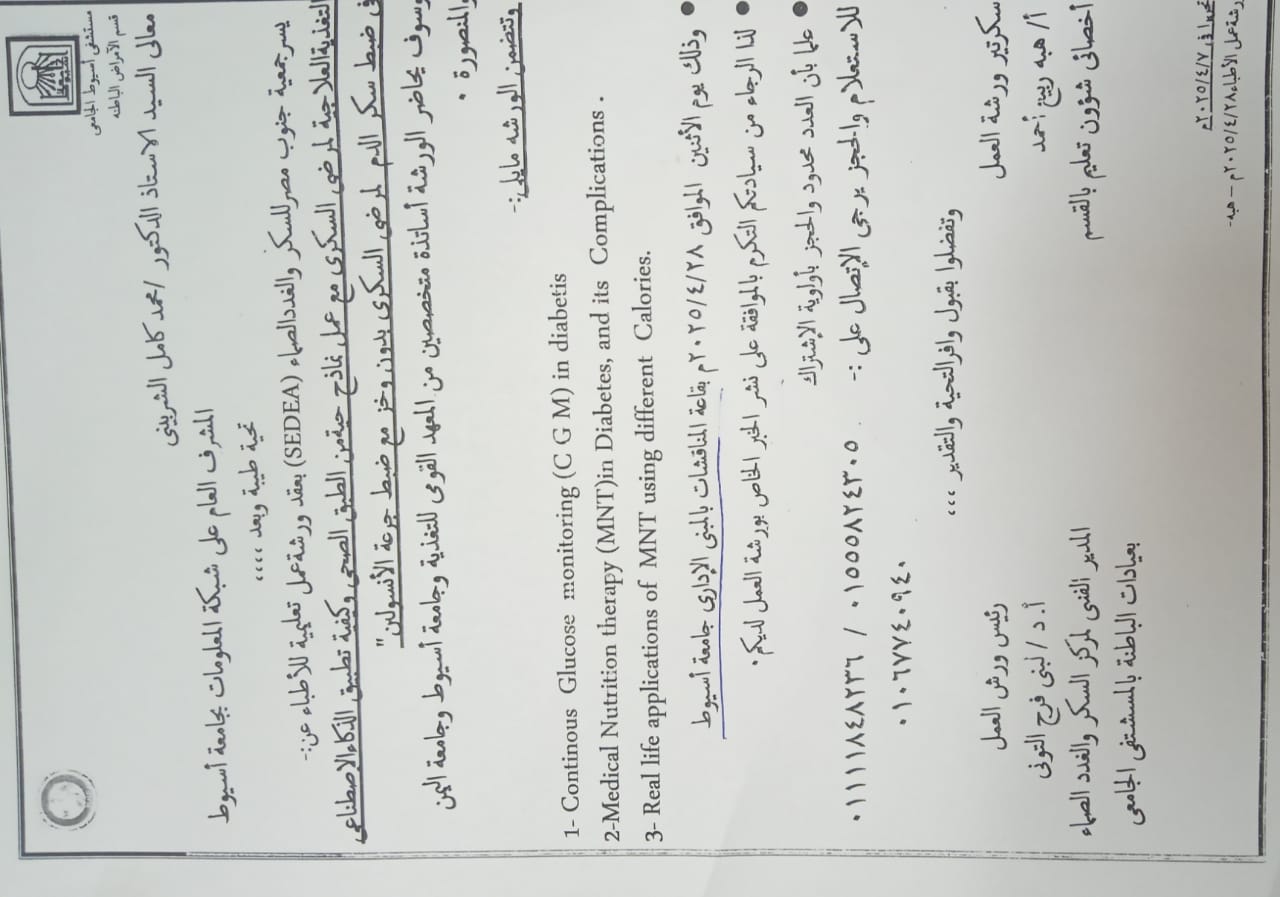 مستشفى أسيوط الجامعى
قسم الأمراض الباطنه
معالى السيد الاستاذ الدكتور / محمد كامل الشربينى
المشرف العام على شبكة المعلومات بجامعة أسيوط
تحية طيبة وبعد ،،،،
يسر جمعية جنوب مصر للسكر والغدد الصماء (SEDEA) بعقد ورشة عمل تعليمية للأطباء عن:-
التغذية العلاجية لمرضى السكرى مع عمل نماذج حيه من الطبق الصحى وكيفية تطبيق الذكاء الاصطناعى
فى ضبط سكر الدم لمرضى السكرى بدون وخز مع ضبط جرعة الأنسولين"
وسوف يحاضر الورشة أساتذة متخصصين من المعهد القومى للتغذية وجامعة أسيوط وجامعة اليمن
والمنصورة .
وتتضمن الورشه مايلى:-
1- Continous Glucose monitoring (C G M) in diabetis
2-Medical Nutrition therapy (MNT)in Diabetes, and its Complications .
3- Real life applications of MNT using different Calories.
● وذلك يوم الأثنين الموافق ٢٠٢٥/٤/٢٨م بقاعة المناقشات بالمبنى الإدارى جامعة أسيوط
● لنا الرجاء من سيادتكم التكرم بالموافقة على نشر الخبر الخاص بورشة العمل لديكم.
● علما بأن العدد محدود والحجز بأولوية الإشتراك
للاستعلام والحجز يرجى الإتصال على :- ٠١٥٥٥٨٢٤٣٠٥ / ٠١١١١٨٤٨٢٣٦
٠١٠٦٧٧٤٠٩٤٠
وتفضلوا بقبول وافر التحية والتقدير ،،،
سكرتير ورشة العمل
أ/ هبه ربيع أحمد
أخصائى شؤون تعليم بالقسم
رئيس ورش العمل
أ.د/ لبنى فرج التونى
المدير الفنى لمركز السكر والغدد الصماء
بعيادات الباطنة بالمستشفى الجامعى
تحريرا فى ٢٠٢٥/٤/٧م
ورشة عمل الأطباء ٢٠٢٥/٤/٢٨م – هبه-